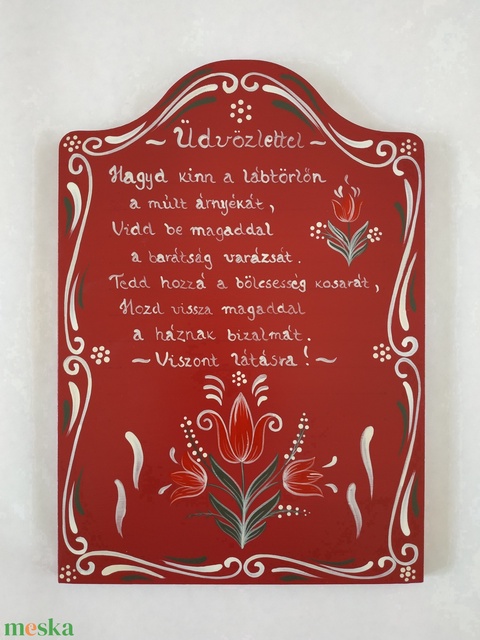 ~ Üdvözlettel ~
Hagyd kinn a lábtörlőn
a múlt árnyékát,
Vidd be magaddal
a barátság varázsát.
Tedd hozzá a bölcsesség kosarát,
Hozd vissza magaddal
a háznak bizalmát.
~ Viszont látásra! ~
meska